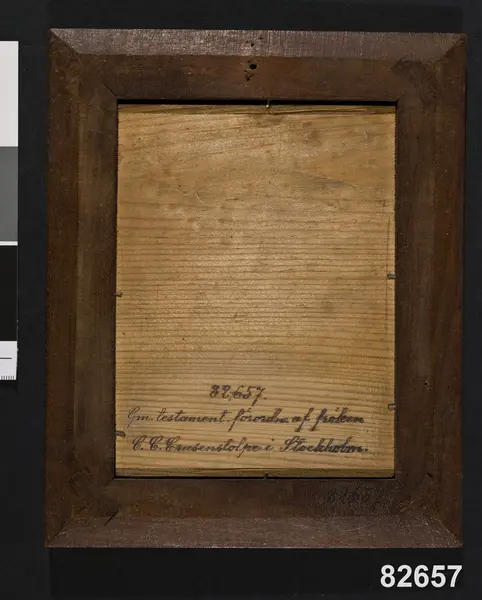 82,657.
Gm. testament förordn. af fröken
C. C. Crusenstolpe i Stockholm.
82657